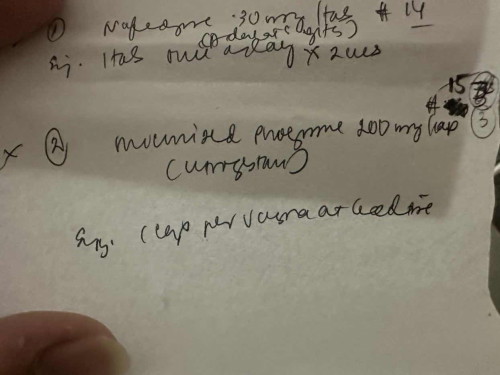 ① Nifedipine 30 mg/tab # 14
(Adalat Gits)
Sig. 1 tab once a day x 2 wks
# 15
3
x ② micronized progesterone 200 mg/cap
(Utrogestan)
Sig. 1 cap per vagina at bedtime